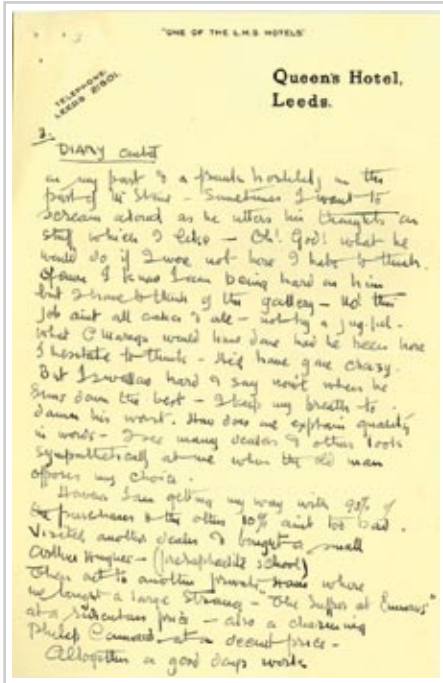 "ONE OF THE L.M.S. HOTELS"
TELEPHONE:
LEEDS 21501.
Queen's Hotel,
Leeds.
3.
DIARY contd
on my part & a frank hostility on the
part of Mr - Sometimes I want to
scream aloud as he utters his thoughts on
stuff which I like - Oh! God! what he
would do if I were not here I hate to think.
Of course I know I am being hard on him
but I have to think of the gallery - No this
job aint all cakes & ale - not by a jug-ful.
What would have done had he been here
I hesitate to think - He'd have gone crazy.
But I swallow hard & say nowt when he
turns down the best - I keep my breath to
damn his worst. How does one explain quality
in words - I see many dealers & others look
sympathetically at me when the old man
opposes my choice.
However I am getting my way with 90% of
the purchases & the other 10% aint too bad.
Visited another dealer & bought a small
Arthur Hughes - (preraphaelite school)
Then act to another private home where
we bought a large Strang - "The Supper at Emmaus"
at a ridiculous price - also a charming
Philip Connard - at a decent price -
Altogether a good days work